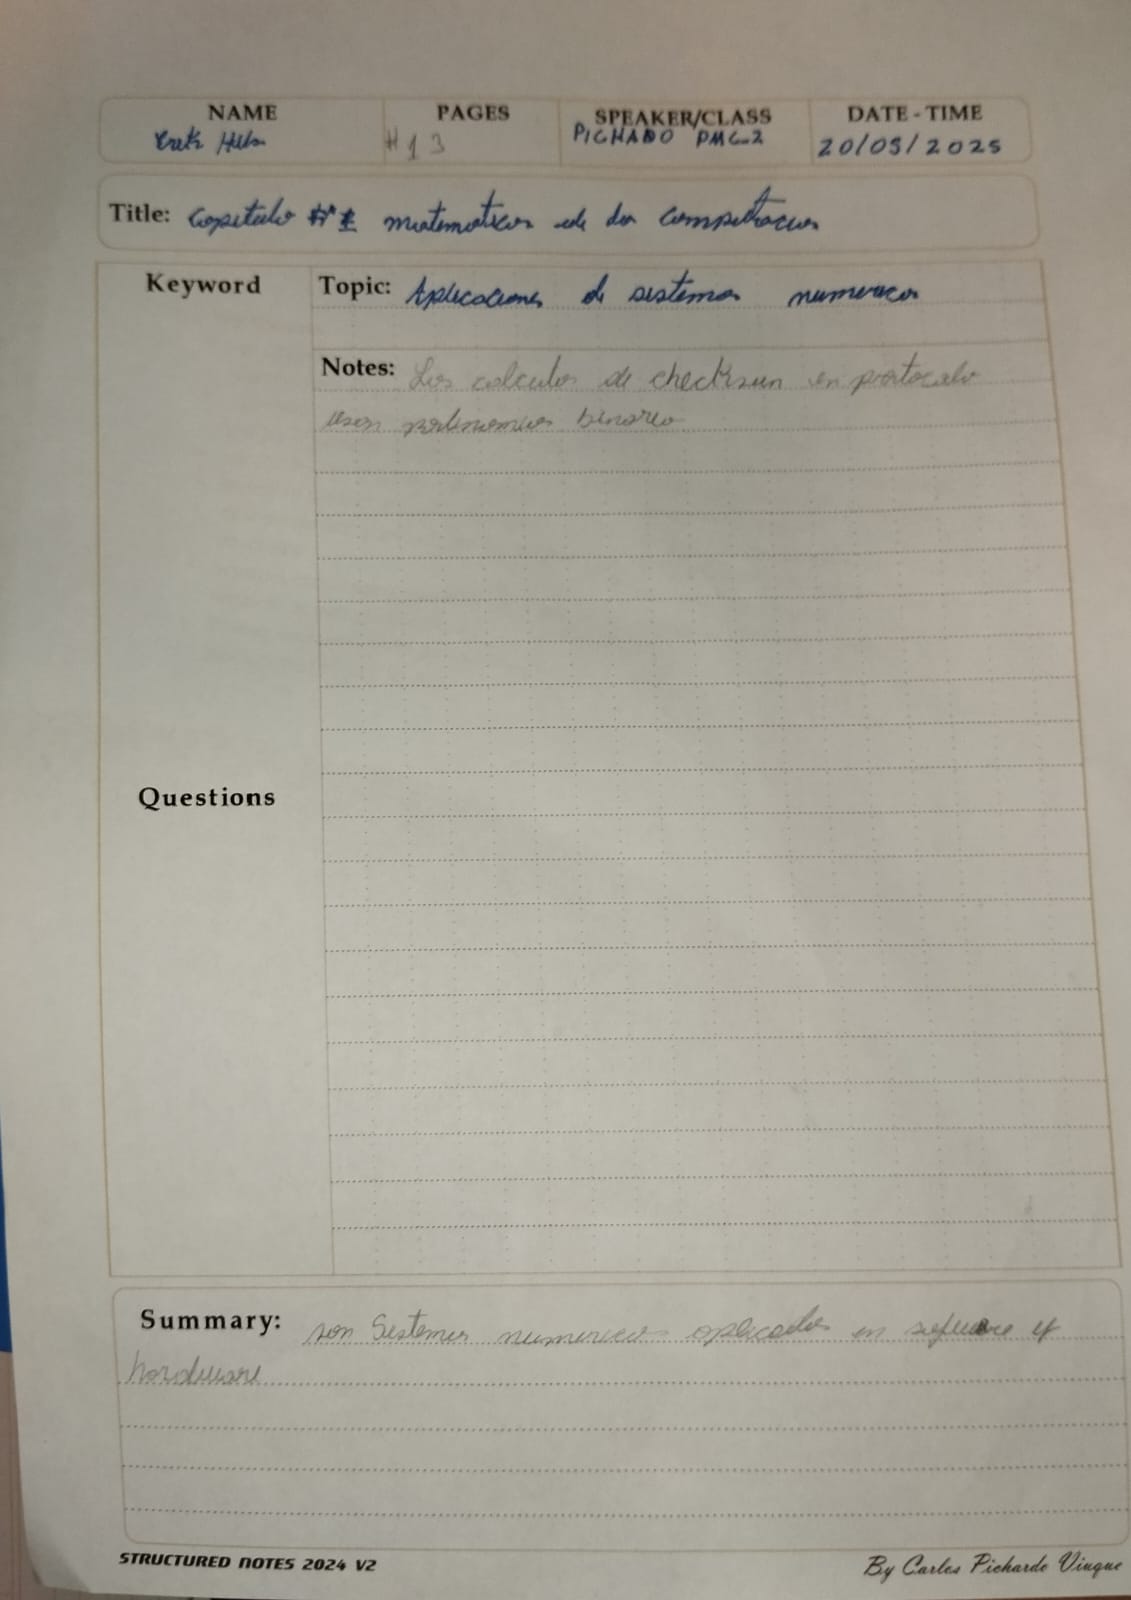 NAME PAGES SPEAKER/CLASS DATE - TIME
#13 PICHADO PMC-2 20/05/2025
Title: Capitulo #1 matematicas de la computacion
Keyword
Topic: Aplicaciones de sistemas numericos
Notes: Los calculos de checksun en protocolo
usan polinomios binario
Questions
Summary: son Sistemas numericos aplicados en sofware y
hardware
STRUCTURED NOTES 2024 V2
By Carlos Pichardo Viuque